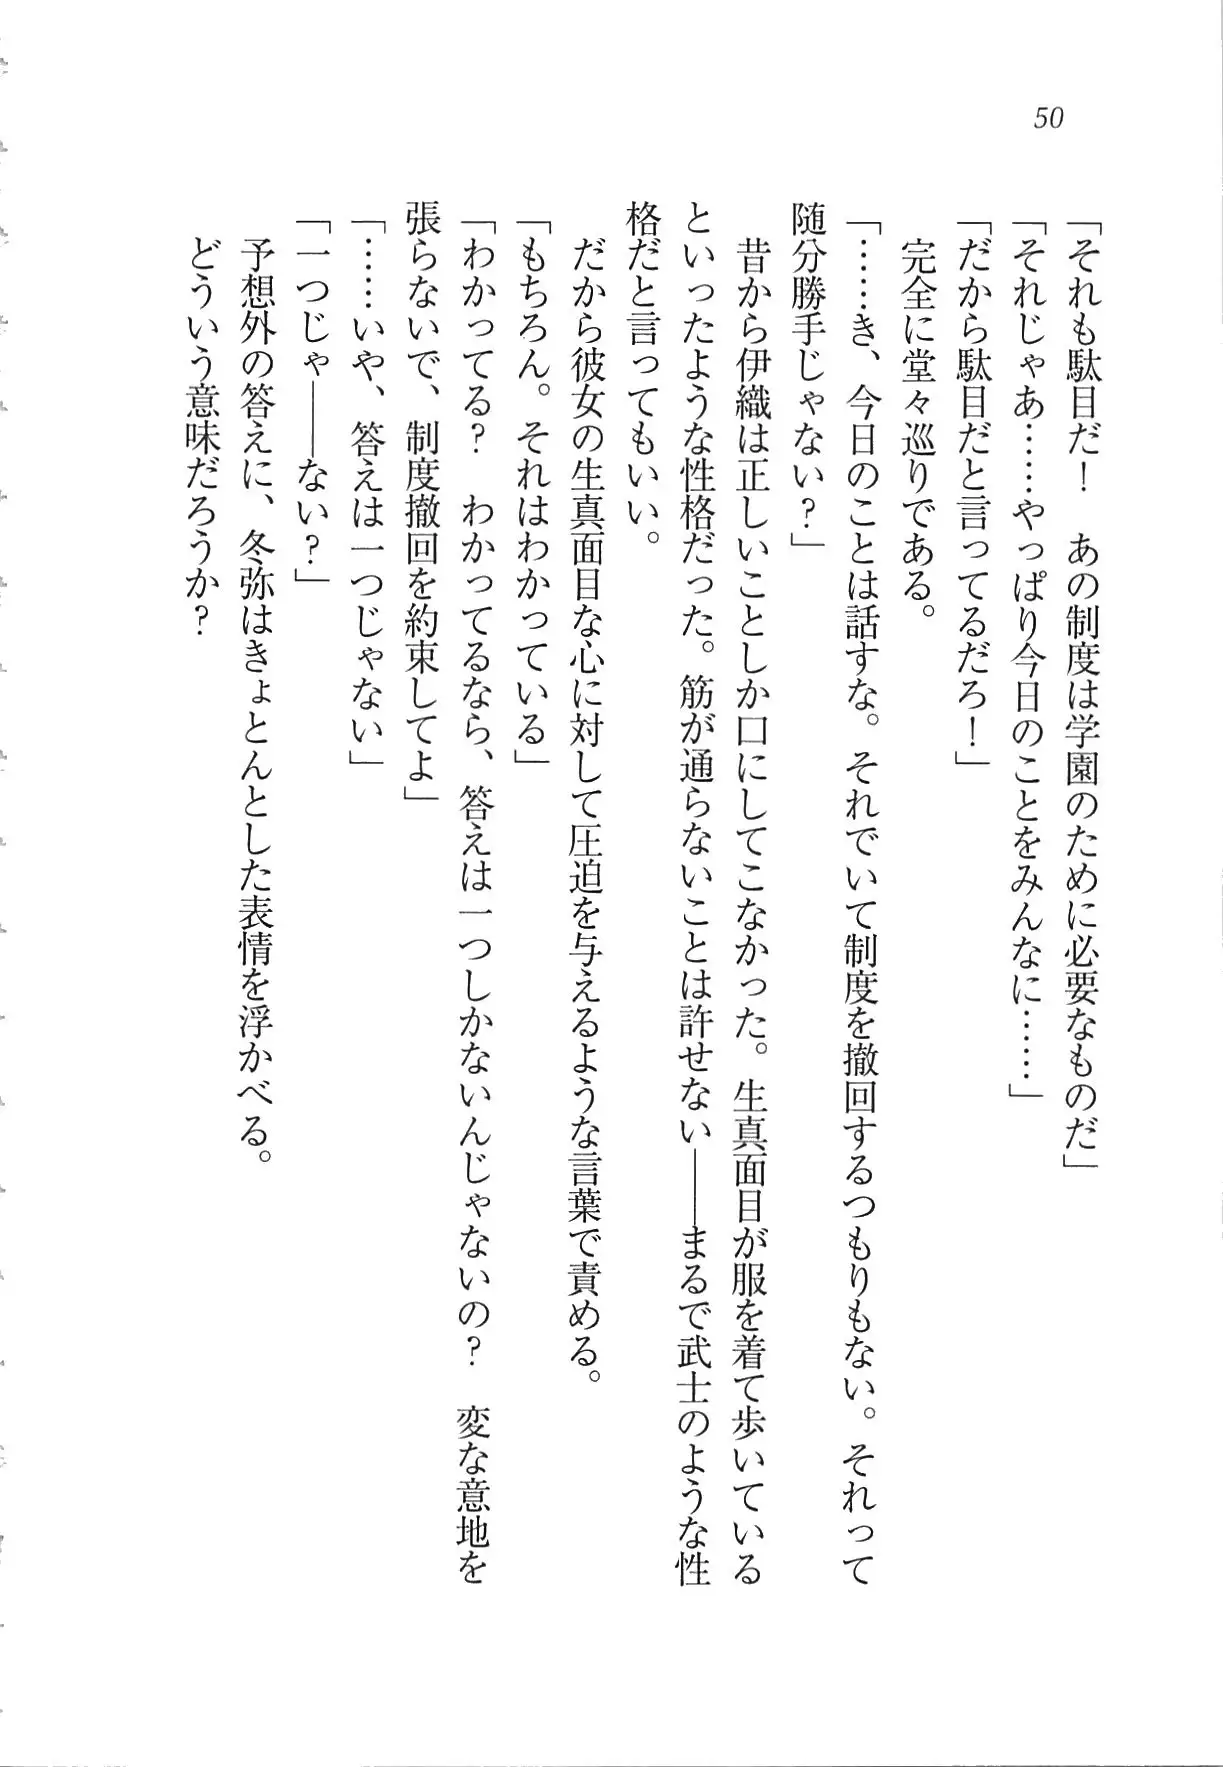 50
「それも駄目だ！　あの制度は学園のために必要なものだ」
「それじゃあ……やっぱり今日のことをみんなに……」
「だから駄目だと言ってるだろ！」
　完全に堂々巡りである。
「……き、今日のことは話すな。それでいて制度を撤回するつもりもない。それって
随分勝手じゃない？」
　昔から伊織は正しいことしか口にしてこなかった。生真面目が服を着て歩いている
といったような性格だった。筋が通らないことは許せない――まるで武士のような性
格だと言ってもいい。
　だから彼女の生真面目な心に対して圧迫を与えるような言葉で責める。
「もちろん。それはわかっている」
「わかってる？　わかってるなら、答えは一つしかないんじゃないの？　変な意地を
張らないで、制度撤回を約束してよ」
「……いや、答えは一つじゃない」
「一つじゃ――ない？」
　予想外の答えに、冬弥はきょとんとした表情を浮かべる。
　どういう意味だろうか？